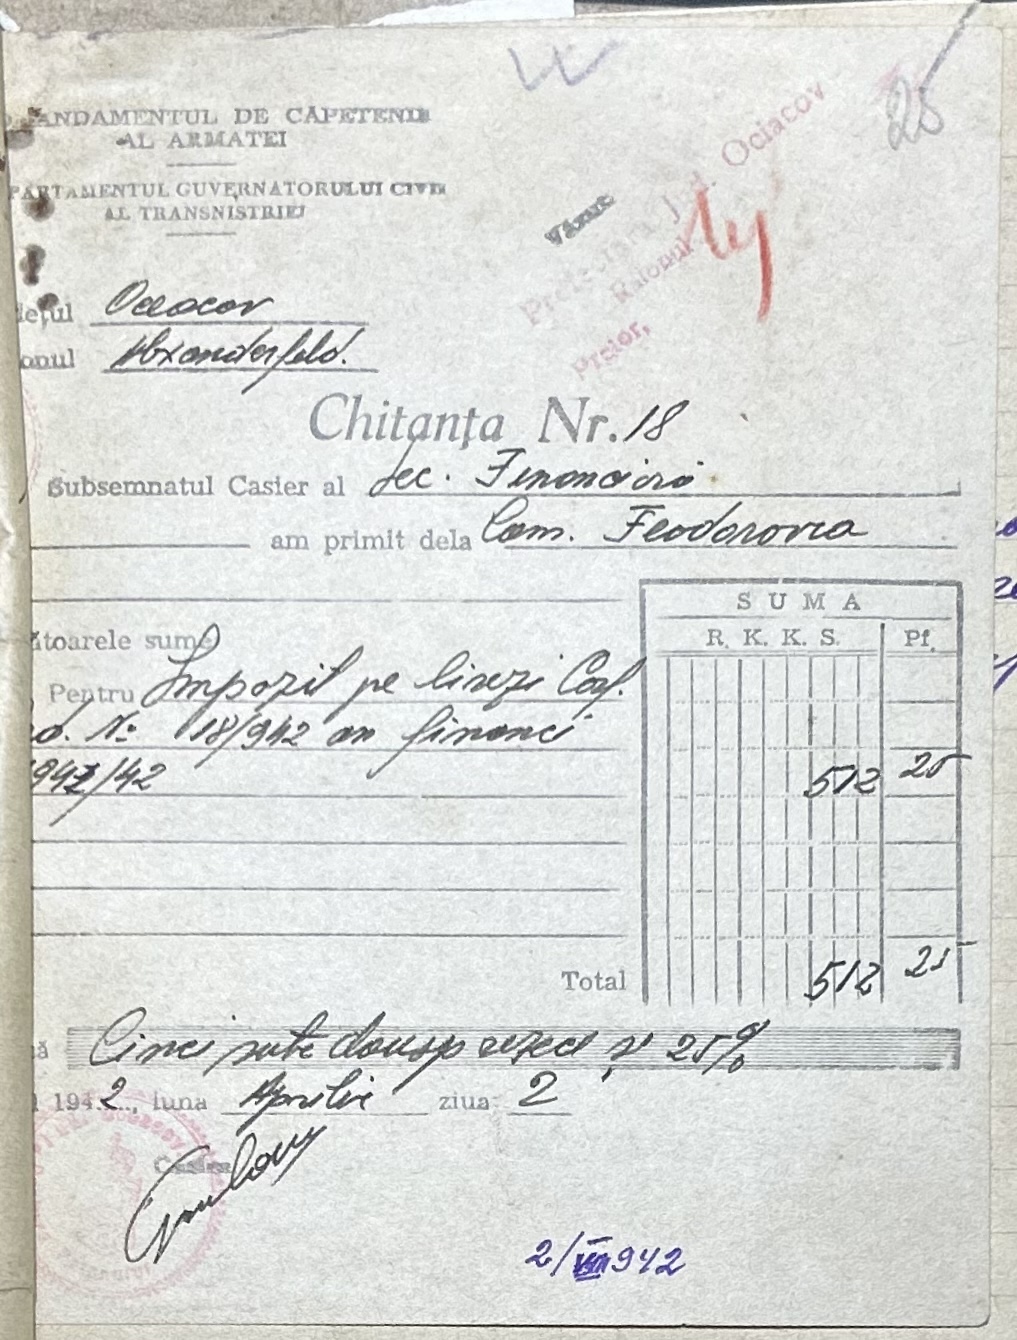 25
ANDAMENTUL DE CĂPETENIE
AL ARMATEI
PARTAMENTUL GUVERNATORULUI CIVIL
AL TRANSNISTRIEI
Văzut
Ociacov
Raionul
Pretor,
dețul Oceacov
onul Alexanderfeld.
Chitanța Nr. 18
Subsemnatul Casier al Sec. Financiară
am primit dela Com. Feodorovca
SUMA
ătoarele sume
R. K. K. S. Pf.
Pentru Impozit pe livezi Conf.
od. No 18/942 an financi
1941/42 512 25
Total 512 25
ă Cinci sute douăsprezece și 25%
1942, luna Aprilie ziua 2
Casier
2/VIII 942